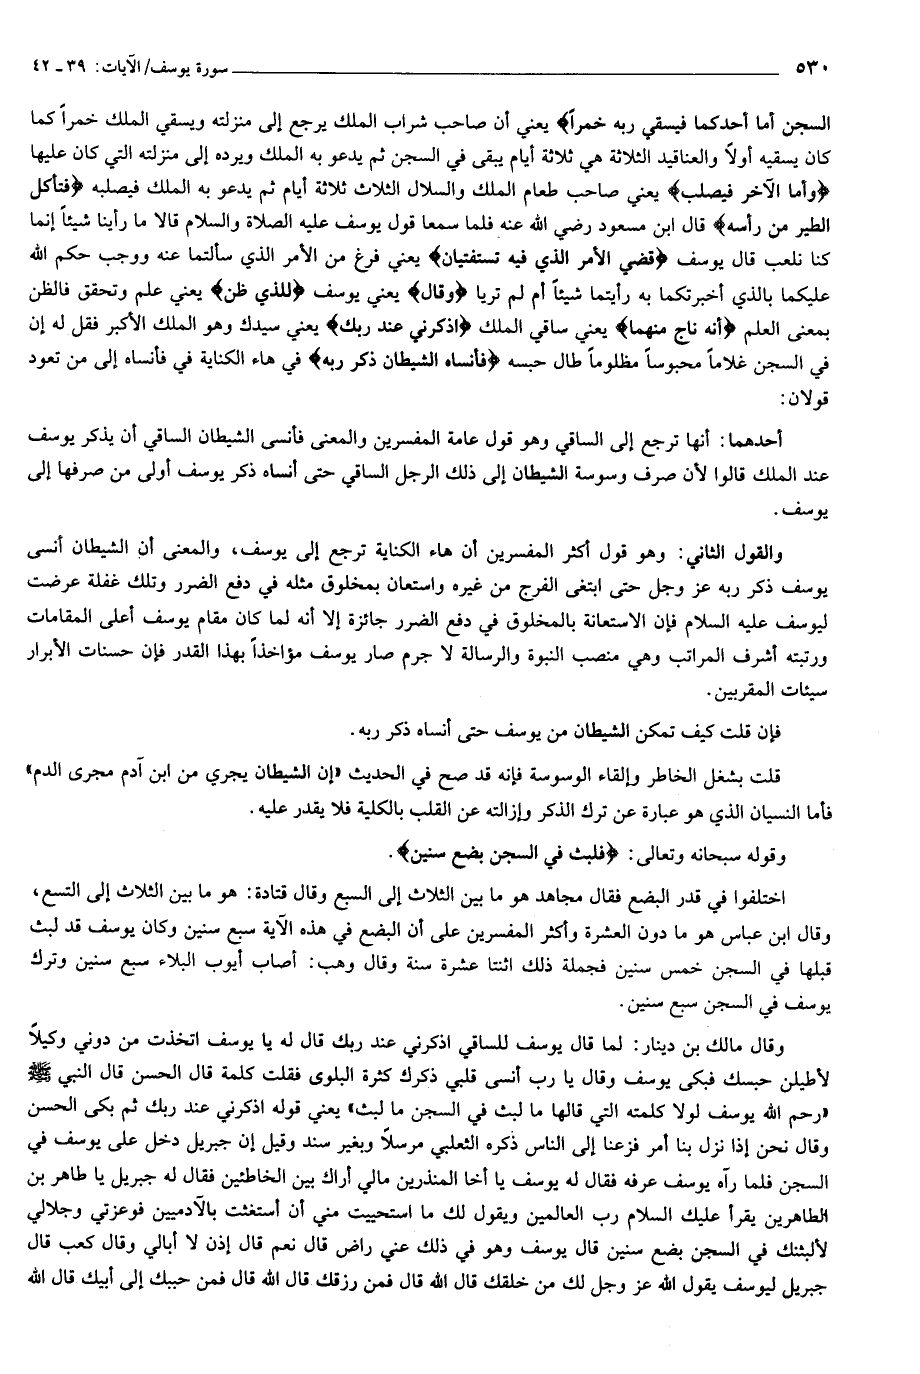 ٥٣٠ سورة يوسف/ الآيات: ٣٩ ـ ٤٢
السجن أما أحدكما فيسقي ربه خمراً﴾ يعني أن صاحب شراب الملك يرجع إلى منزلته ويسقي الملك خمراً كما
كان يسقيه أولاً والعناقيد الثلاثة هي ثلاثة أيام يبقى في السجن ثم يدعو به الملك ويرده إلى منزلته التي كان عليها
﴿وأما الآخر فيصلب﴾ يعني صاحب طعام الملك والسلال الثلاث ثلاثة أيام ثم يدعو به الملك فيصلبه ﴿فتأكل
الطير من رأسه﴾ قال ابن مسعود رضي الله عنه فلما سمعا قول يوسف عليه الصلاة والسلام قالا ما رأينا شيئاً إنما
كنا نلعب قال يوسف ﴿قضي الأمر الذي فيه تستفتيان﴾ يعني فرغ من الأمر الذي سألتما عنه ووجب حكم الله
عليكما بالذي أخبرتكما به رأيتما شيئاً أم لم تريا ﴿وقال﴾ يعني يوسف ﴿للذي ظن﴾ يعني علم وتحقق فالظن
بمعنى العلم ﴿أنه ناج منهما﴾ يعني ساقي الملك ﴿اذكرني عند ربك﴾ يعني سيدك وهو الملك الأكبر فقل له إن
في السجن غلاماً محبوساً مظلوماً طال حبسه ﴿فأنساه الشيطان ذكر ربه﴾ في هاء الكناية في فأنساه إلى من تعود
قولان:
أحدهما: أنها ترجع إلى الساقي وهو قول عامة المفسرين والمعنى فأنسى الشيطان الساقي أن يذكر يوسف
عند الملك قالوا لأن صرف وسوسة الشيطان إلى ذلك الرجل الساقي حتى أنساه ذكر يوسف أولى من صرفها إلى
يوسف.
والقول الثاني: وهو قول أكثر المفسرين أن هاء الكناية ترجع إلى يوسف، والمعنى أن الشيطان أنسى
يوسف ذكر ربه عز وجل حتى ابتغى الفرج من غيره واستعان بمخلوق مثله في دفع الضرر وتلك غفلة عرضت
ليوسف عليه السلام فإن الاستعانة بالمخلوق في دفع الضرر جائزة إلا أنه لما كان مقام يوسف أعلى المقامات
ورتبته أشرف المراتب وهي منصب النبوة والرسالة لا جرم صار يوسف مؤاخذاً بهذا القدر فإن حسنات الأبرار
سيئات المقربين.
فإن قلت كيف تمكن الشيطان من يوسف حتى أنساه ذكر ربه.
قلت بشغل الخاطر وإلقاء الوسوسة فإنه قد صح في الحديث «إن الشيطان يجري من ابن آدم مجرى الدم»
فأما النسيان الذي هو عبارة عن ترك الذكر وإزالته عن القلب بالكلية فلا يقدر عليه.
وقوله سبحانه وتعالى: ﴿فلبث في السجن بضع سنين﴾.
اختلفوا في قدر البضع فقال مجاهد هو ما بين الثلاث إلى السبع وقال قتادة: هو ما بين الثلاث إلى التسع،
وقال ابن عباس هو ما دون العشرة وأكثر المفسرين على أن البضع في هذه الآية سبع سنين وكان يوسف قد لبث
قبلها في السجن خمس سنين فجملة ذلك اثنتا عشرة سنة وقال وهب: أصاب أيوب البلاء سبع سنين وترك
يوسف في السجن سبع سنين.
وقال مالك بن دينار: لما قال يوسف للساقي اذكرني عند ربك قال له يا يوسف اتخذت من دوني وكيلاً
لأطيلن حبسك فبكى يوسف وقال يا رب أنسى قلبي ذكرك كثرة البلوى فقلت كلمة قال الحسن قال النبي ﷺ
«رحم الله يوسف لولا كلمته التي قالها ما لبث في السجن ما لبث» يعني قوله اذكرني عند ربك ثم بكى الحسن
وقال نحن إذا نزل بنا أمر فزعنا إلى الناس ذكره الثعلبي مرسلاً وبغير سند وقيل إن جبريل دخل على يوسف في
السجن فلما رآه يوسف عرفه فقال له يوسف يا أخا المنذرين مالي أراك بين الخاطئين فقال له جبريل يا طاهر بن
الطاهرين يقرأ عليك السلام رب العالمين ويقول لك ما استحييت مني أن أستغثت بالآدميين فوعزتي وجلالي
لألبثنك في السجن بضع سنين قال يوسف وهو في ذلك عني راض قال نعم قال إذن لا أبالي وقال كعب قال
جبريل ليوسف يقول الله عز وجل لك من خلقك قال الله قال فمن رزقك قال الله قال فمن حببك إلى أبيك قال الله